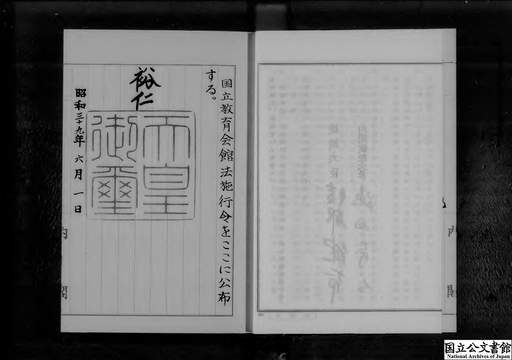 国立教育会館法施行令をここに公布
する。
裕仁
天皇
御璽
昭和三十九年六月一日
内
閣
国立公文書館
National Archives of Japan